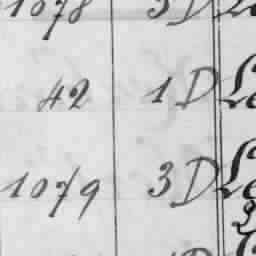 1078 3 D
42 1 D Le
1079 3 D Le